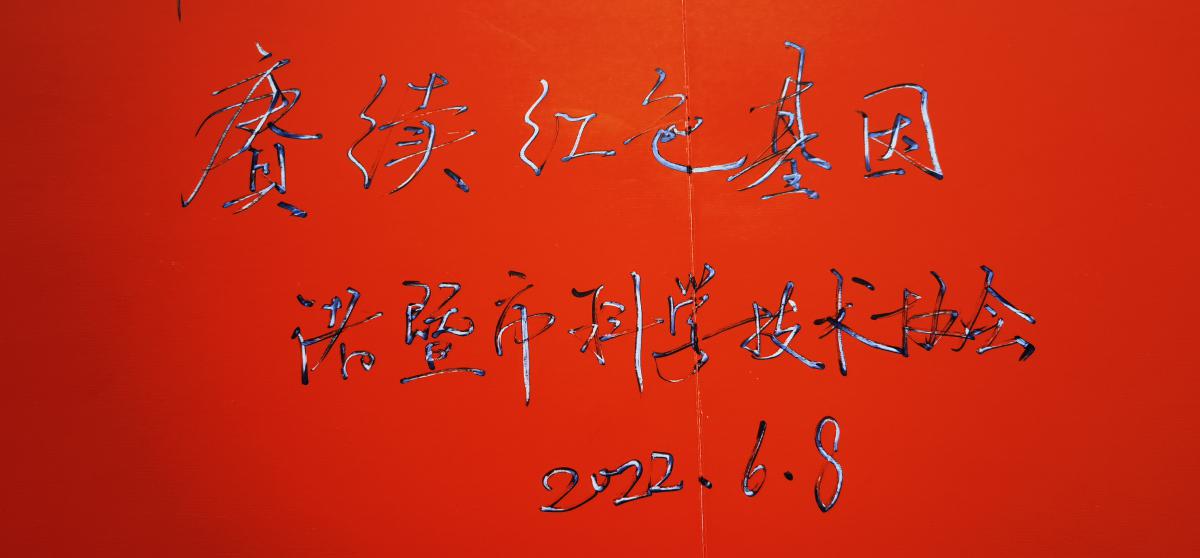 赓续红色基因
诸暨市科学技术协会
2022.6.8